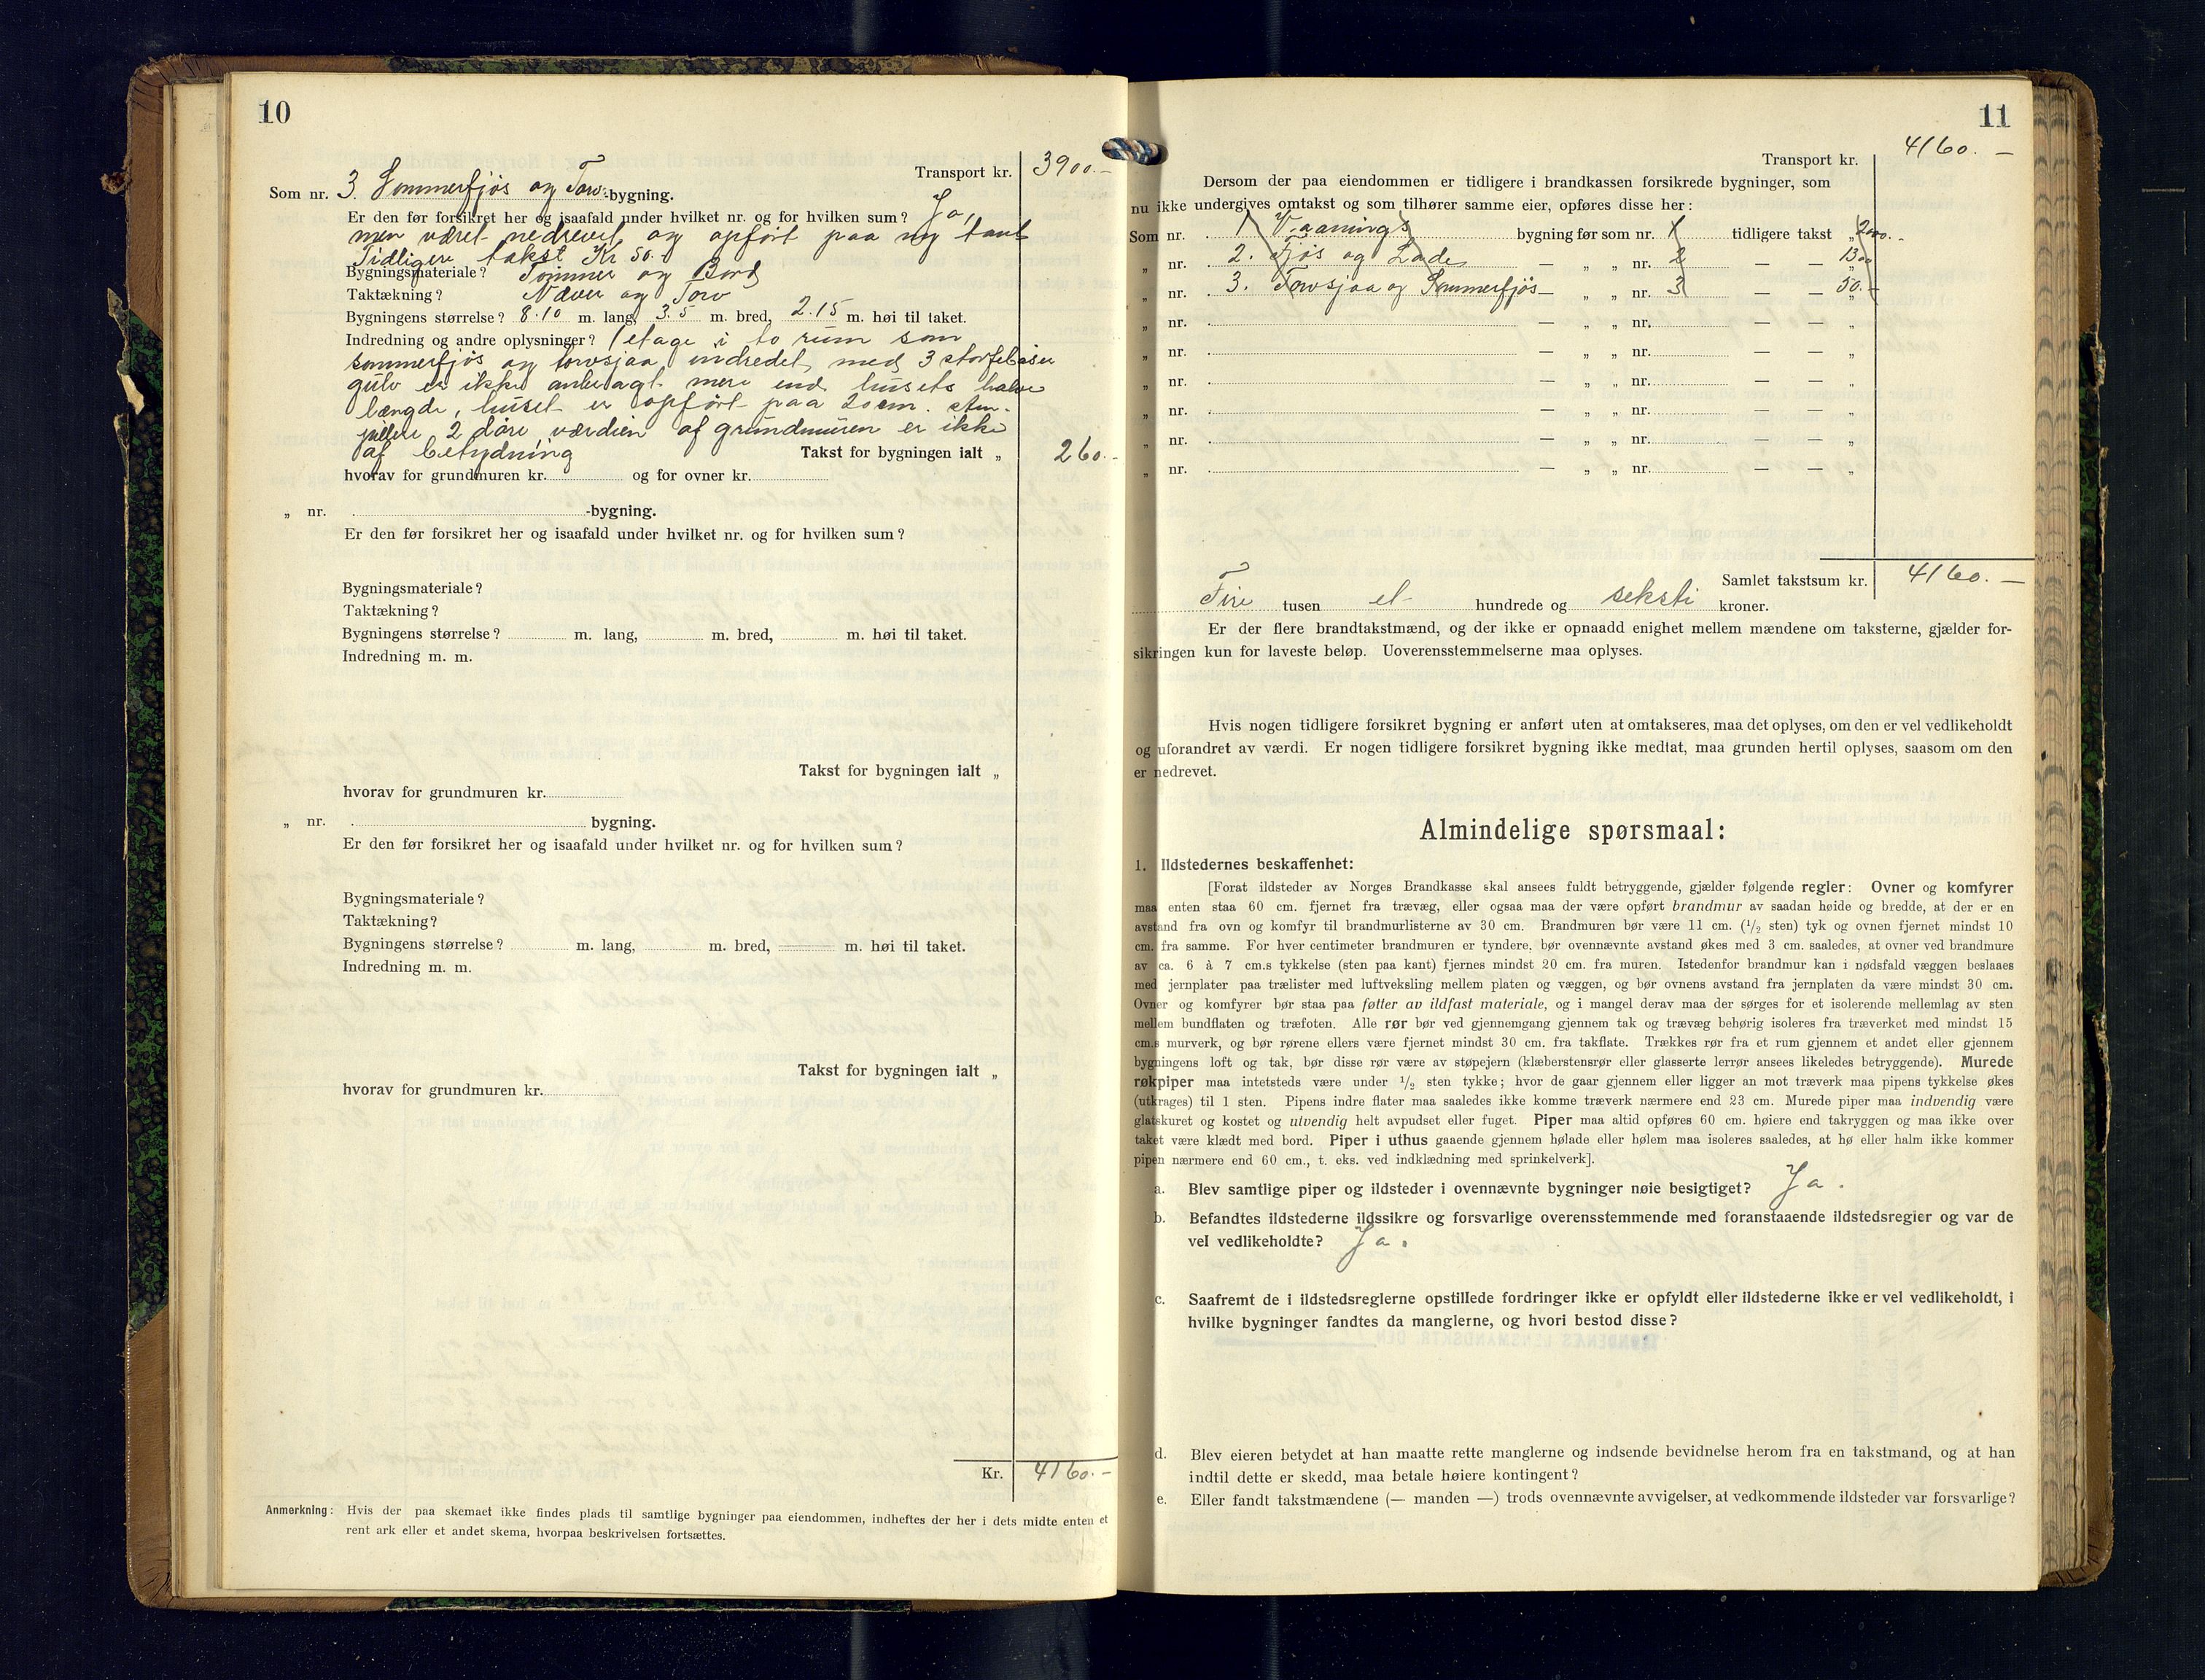 10
Transport kr. 3900.-
Som nr. 3. Sommerfjøs og Torv-bygning.
Er den før forsikret her og isaafald under hvilket nr. og for hvilken sum? Ja,
men været nedrevet og opført paa ny tomt
Tidligere takst Kr 50.-
Bygningsmateriale? Tømmer og Bord
Taktækning? Næver og Torv
Bygningens størrelse? 8.10 m. lang, 3.5 m. bred, 2.15 m. høi til taket.
Indredning og andre oplysninger? 1 etage i to rum som
sommerfjøs og torvsjaa indredet med 3 storfebaser
gulv er ikke anbragt mere end husets halve
længde, huset er opført paa 20 cm. sten-
pillere 2 døre værdien af grundmuren er ikke
af betydning Takst for bygningen ialt „ 260.-
hvorav for grundmuren kr. og for ovner kr.
„ nr. -bygning.
Er den før forsikret her og isaafald under hvilket nr. og for hvilken sum?
Bygningsmateriale?
Taktækning?
Bygningens størrelse? m. lang, m. bred, m. høi til taket.
Indredning m. m.
Takst for bygningen ialt „
hvorav for grundmuren kr.
„ nr. bygning.
Er den før forsikret her og isaafald under hvilket nr. og for hvilken sum?
Bygningsmateriale?
Taktækning?
Bygningens størrelse? m. lang, m. bred, m. høi til taket.
Indredning m. m.
Takst for bygningen ialt „
hvorav for grundmuren kr.
Kr. 4160.-
Anmerkning: Hvis der paa skemaet ikke findes plads til samtlige bygninger paa eiendommen, indheftes der her i dets midte enten et
rent ark eller et andet skema, hvorpaa beskrivelsen fortsættes.
11
Transport kr. 4160.-
Dersom der paa eiendommen er tidligere i brandkassen forsikrede bygninger, som
nu ikke undergives omtakst og som tilhører samme eier, opføres disse her:
Som nr. 1 Vaanings bygning før som nr. 1 tidligere takst „ 2000.-
„ nr. 2. Fjøs og Lade — „ „ nr. 2 — — „ 1300
„ nr. 3. Torvsjaa og Sommerfjøs — „ „ nr. 3 — — „ 50.-
„ nr. — „ „ nr. — — „
„ nr. — „ „ nr. — — „
„ nr. — „ „ nr. — — „
„ nr. — „ „ nr. — — „
„ nr. — „ „ nr. — — „
„ nr. — „ „ nr. — — „
Samlet takstsum kr. 4160.-
Fire tusen et hundrede og seksti kroner.
Er der flere brandtakstmænd, og der ikke er opnaadd enighet mellem mændene om taksterne, gjælder for-
sikringen kun for laveste beløp. Uoverensstemmelserne maa oplyses.
Hvis nogen tidligere forsikret bygning er anført uten at omtakseres, maa det oplyses, om den er vel vedlikeholdt
og uforandret av værdi. Er nogen tidligere forsikret bygning ikke medtat, maa grunden hertil oplyses, saasom om den
er nedrevet.
Almindelige spørsmaal:
1. Ildstedernes beskaffenhet:
[Forat ildsteder av Norges Brandkasse skal ansees fuldt betryggende, gjælder følgende regler: Ovner og komfyrer
maa enten staa 60 cm. fjernet fra trævæg, eller ogsaa maa der være opført brandmur av saadan høide og bredde, at der er en
avstand fra ovn og komfyr til brandmurlisterne av 30 cm. Brandmuren bør være 11 cm. (1/2 sten) tyk og ovnen fjernet mindst 10
cm. fra samme. For hver centimeter brandmuren er tyndere, bør ovennævnte avstand økes med 3 cm. saaledes, at ovner ved brandmure
av ca. 6 à 7 cm.s tykkelse (sten paa kant) fjernes mindst 20 cm. fra muren. Istedenfor brandmur kan i nødsfald væggen beslaaes
med jernplater paa trælister med luftveksling mellem platen og væggen, og bør ovnens avstand fra jernplaten da være mindst 30 cm.
Ovner og komfyrer bør staa paa føtter av ildfast materiale, og i mangel derav maa der sørges for et isolerende mellemlag av sten
mellem bundflaten og træfoten. Alle rør bør ved gjennemgang gjennem tak og trævæg behørig isoleres fra træverket med mindst 15
cm.s murverk, og bør rørene ellers være fjernet mindst 30 cm. fra takflate. Trækkes rør fra et rum gjennem et andet eller gjennem
bygningens loft og tak, bør disse rør være av støpejern (klæberstensrør eller glasserte lerrør ansees likeledes betryggende). Murede
røkpiper maa intetsteds være under 1/2 sten tykke; hvor de gaar gjennem eller ligger an mot træverk maa pipens tykkelse økes
(utkrages) til 1 sten. Pipens indre flater maa saaledes ikke komme træverk nærmere end 23 cm. Murede piper maa indvendig være
glatskuret og kostet og utvendig helt avpudset eller fuget. Piper maa altid opføres 60 cm. høiere end takryggen og maa ikke over
taket være klædt med bord. Piper i uthus gaaende gjennem hølade eller hølem maa isoleres saaledes, at hø eller halm ikke kommer
pipen nærmere end 60 cm., t. eks. ved indklædning med sprinkelverk].
a. Blev samtlige piper og ildsteder i ovennævnte bygninger nøie besigtiget? Ja.
b. Befandtes ildstederne ildssikre og forsvarlige overensstemmende med foranstaaende ildstedsregler og var de
vel vedlikeholdte? Ja.
c. Saafremt de i ildstedsreglerne opstillede fordringer ikke er opfyldt eller ildstederne ikke er vel vedlikeholdt, i
hvilke bygninger fandtes da manglerne, og hvori bestod disse?
d. Blev eieren betydet at han maatte rette manglerne og indsende bevidnelse herom fra en takstmand, og at han
indtil dette er skedd, maa betale høiere kontingent?
e. Eller fandt takstmændene (— manden —) trods ovennævnte avvigelser, at vedkommende ildsteder var forsvarlige?